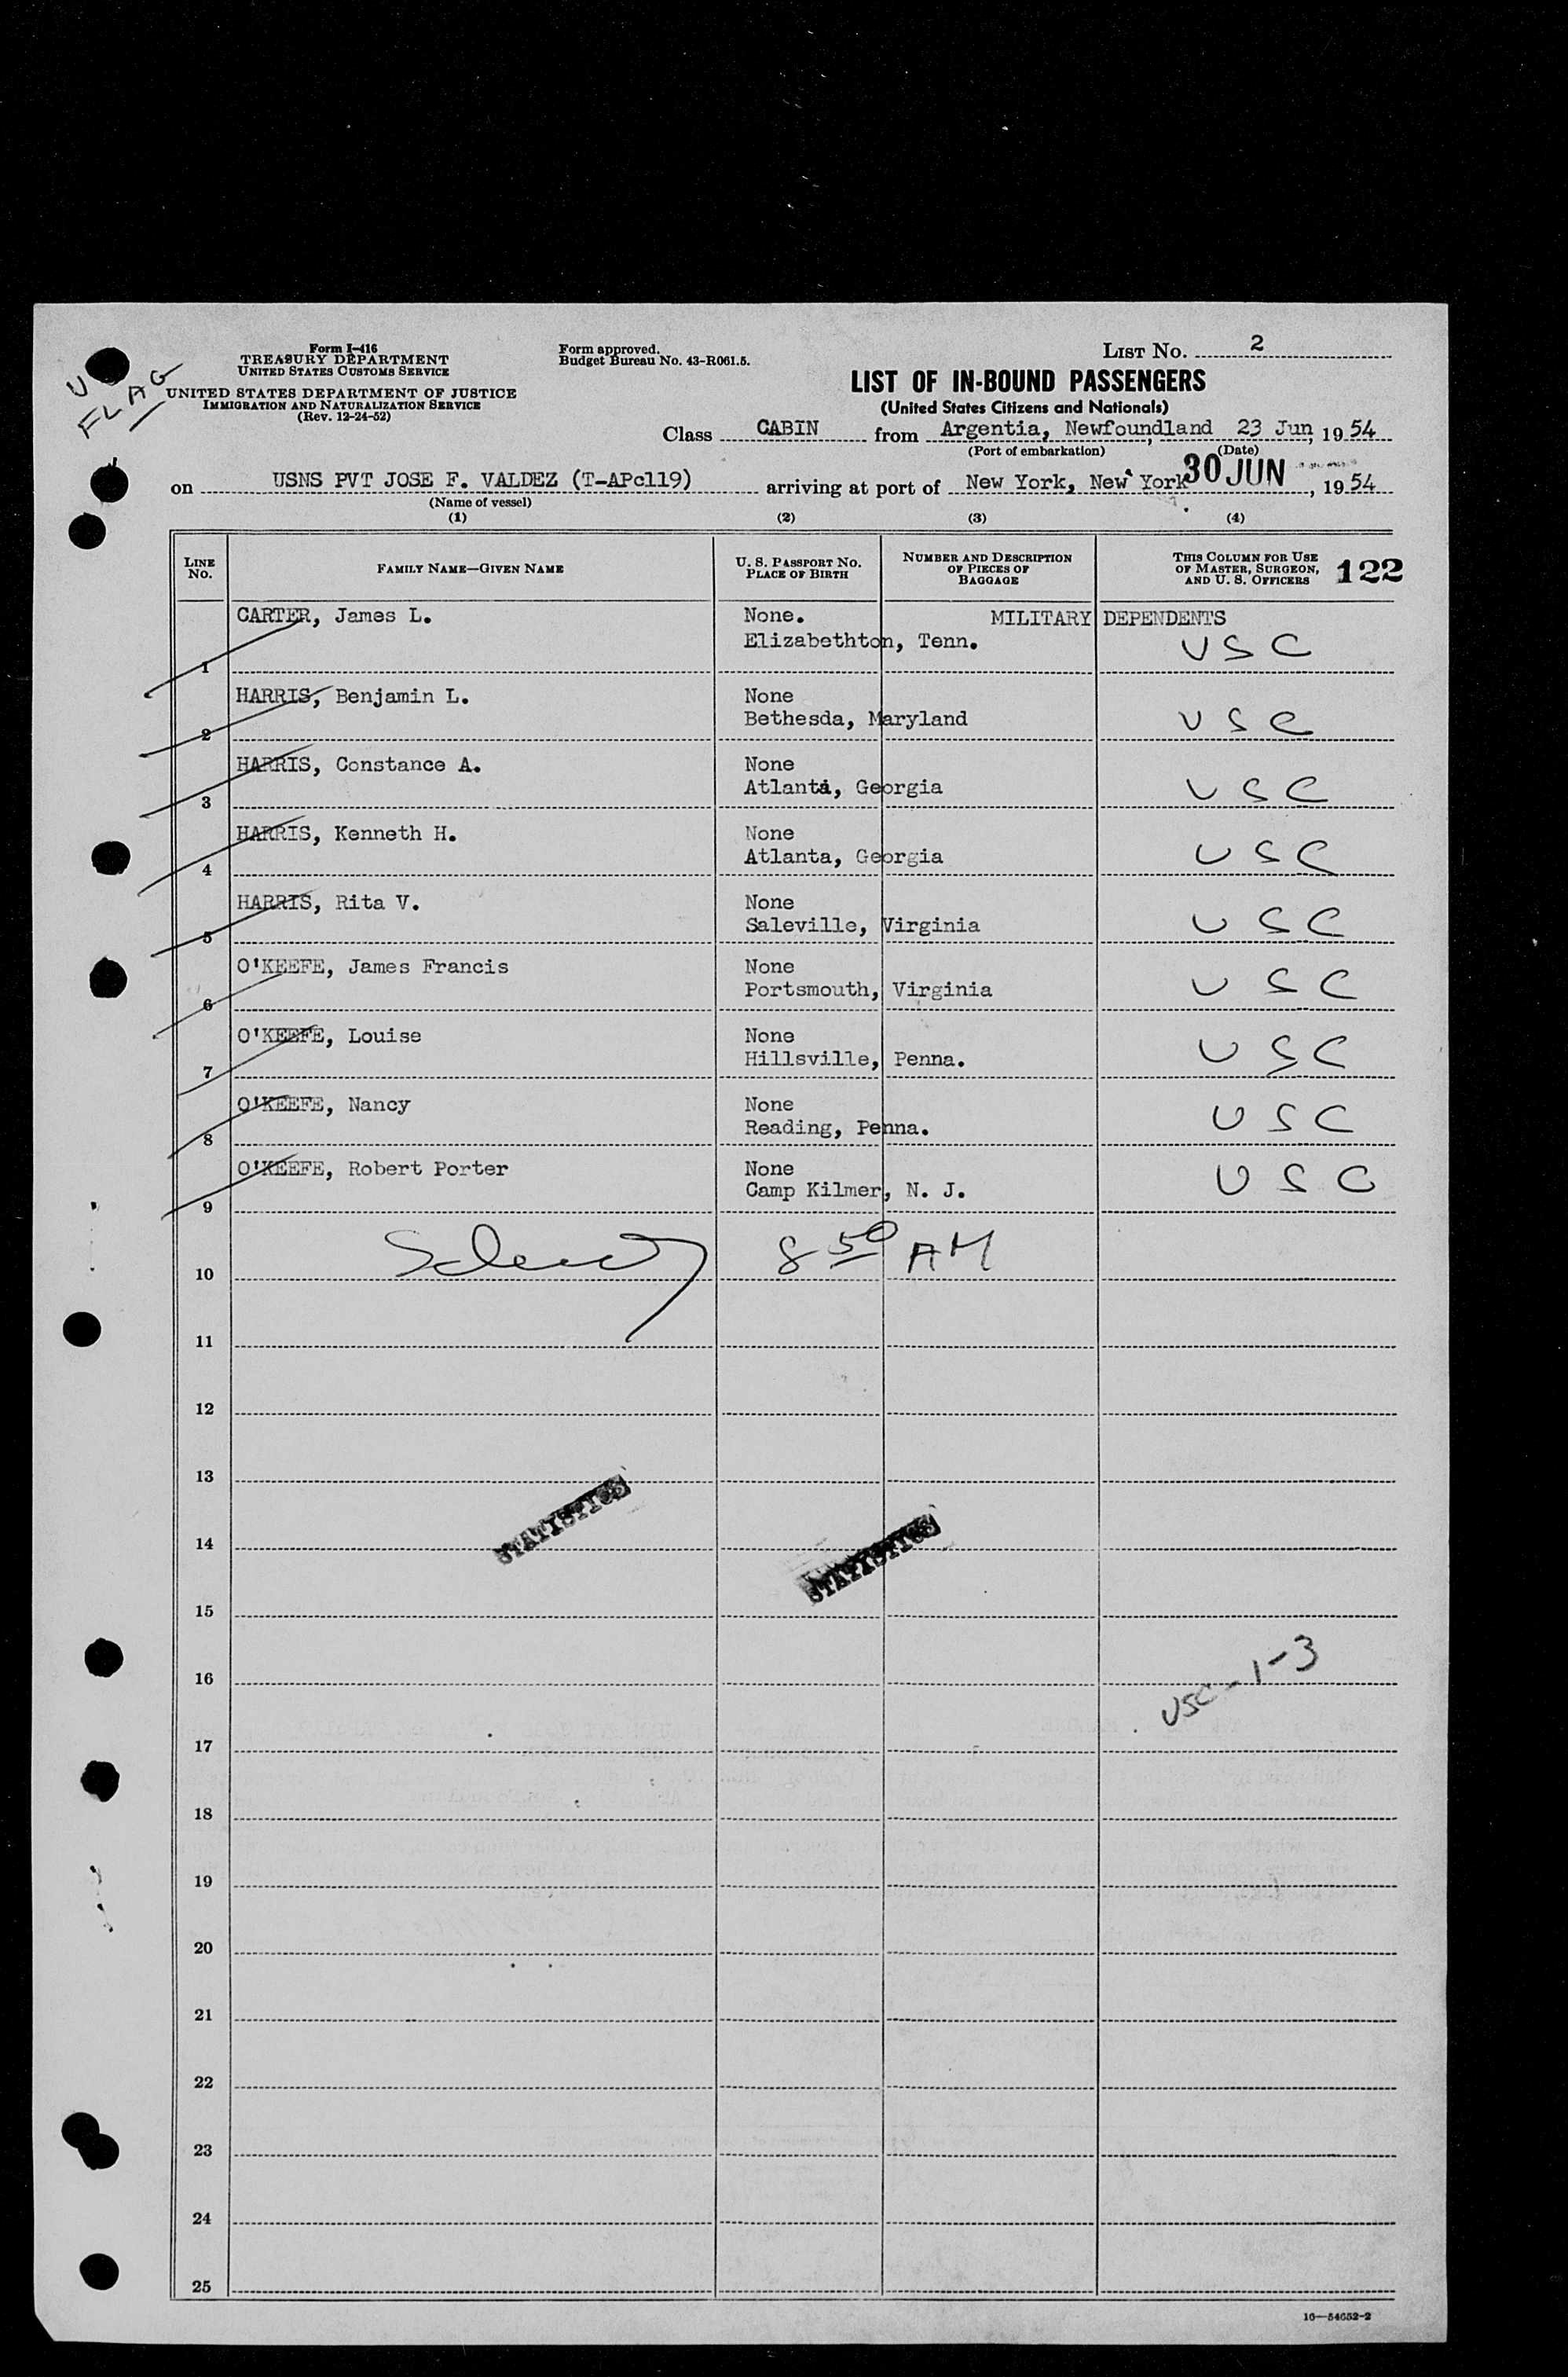 Form I-416
TREASURY DEPARTMENT
UNITED STATES CUSTOMS SERVICE
UNITED STATES DEPARTMENT OF JUSTICE
IMMIGRATION AND NATURALIZATION SERVICE
(Rev. 12-24-52)
Form approved.
Budget Bureau No. 43-R061.5.
LIST No. 2
U
FLAG
LIST OF IN-BOUND PASSENGERS
(United States Citizens and Nationals)
Class CABIN from Argentia, Newfoundland, 23 Jun, 1954
(Port of embarkation) (Date)
on USNS PVT JOSE F. VALDEZ (T-APc119) arriving at port of New York, New York 30 JUN, 1954
(Name of vessel)
(1) (2) (3) (4)
LINE No. FAMILY NAME—GIVEN NAME U. S. PASSPORT No. PLACE OF BIRTH NUMBER AND DESCRIPTION OF PIECES OF BAGGAGE THIS COLUMN FOR USE OF MASTER, SURGEON, AND U. S. OFFICERS 122
CARTER, James L. None. MILITARY DEPENDENTS
1 Elizabethton, Tenn. USC
HARRIS, Benjamin L. None
2 Bethesda, Maryland USC
HARRIS, Constance A. None
3 Atlanta, Georgia USC
HARRIS, Kenneth H. None
4 Atlanta, Georgia USC
HARRIS, Rita V. None
5 Saleville, Virginia USC
O'KEEFE, James Francis None
6 Portsmouth, Virginia USC
O'KEEFE, Louise None
7 Hillsville, Penna. USC
O'KEEFE, Nancy None
8 Reading, Penna. USC
O'KEEFE, Robert Porter None
9 Camp Kilmer, N. J. USC
10 8 50 AM
11
12
13
STATISTICS
14
STATISTICS
15
16
USC-1-3
17
18
19
20
21
22
23
24
25
16—54652-2